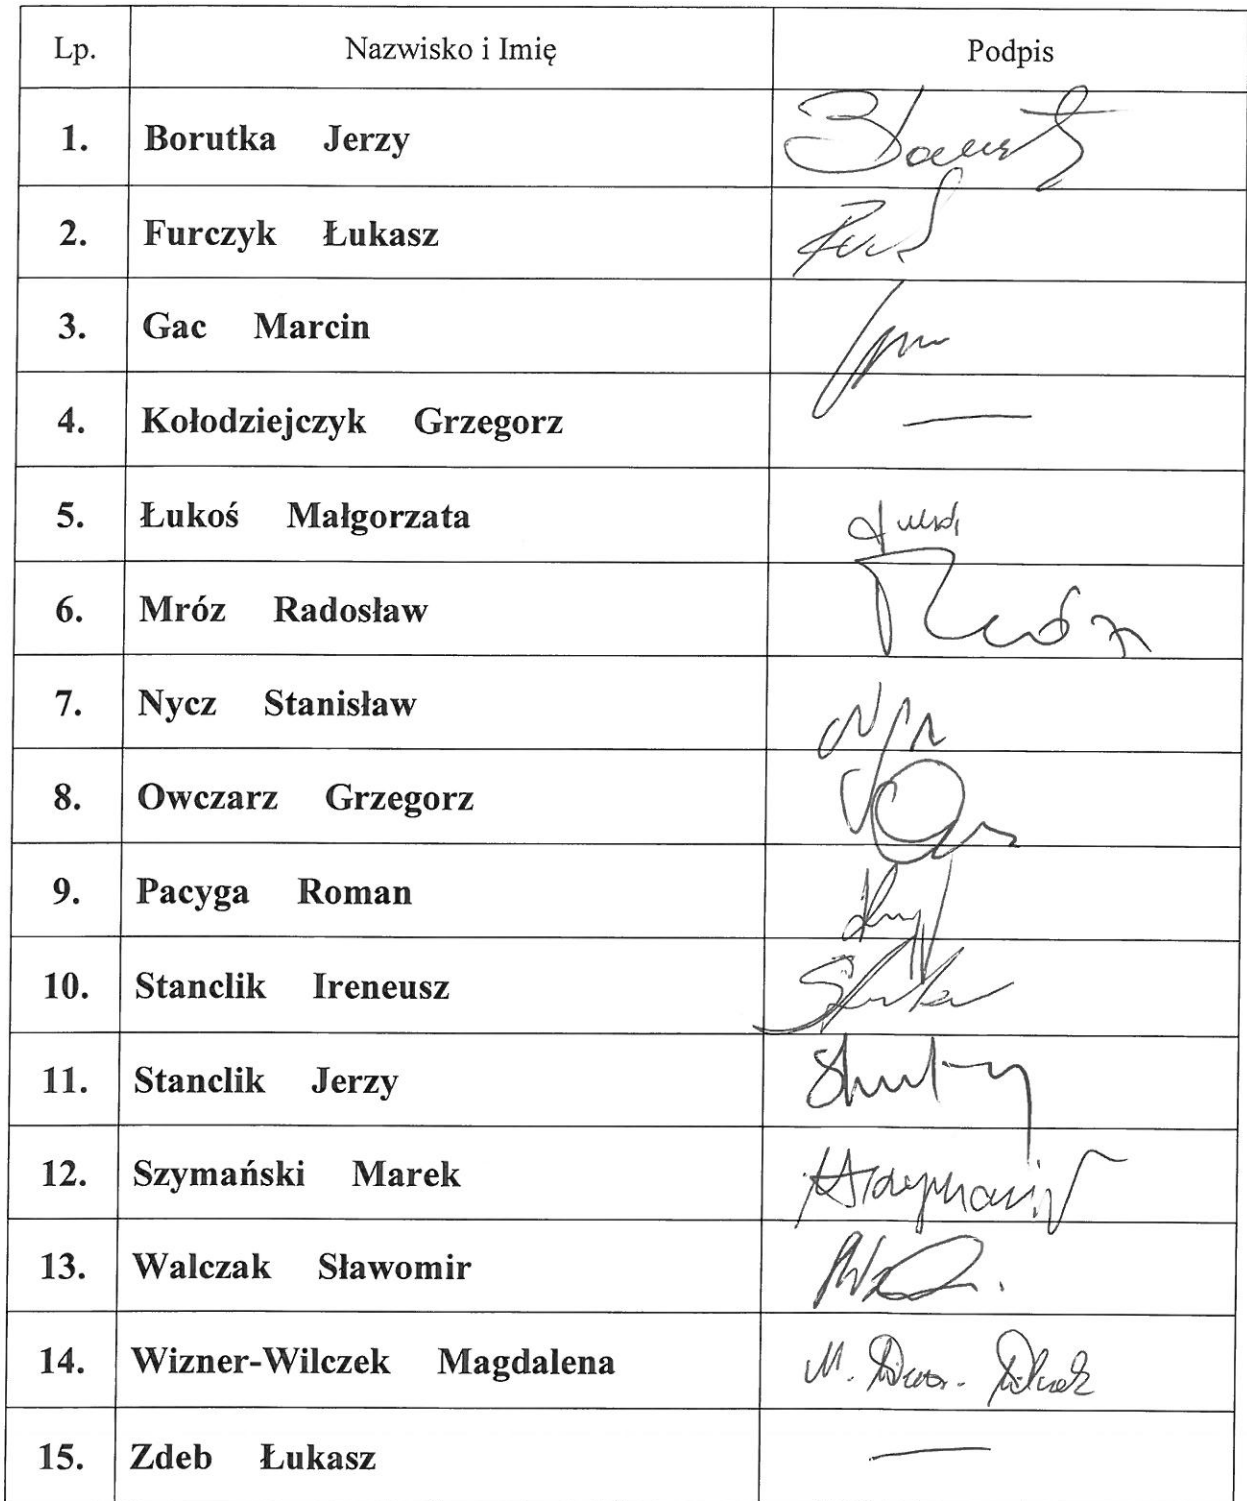 Lp. Nazwisko i Imię Podpis
1. Borutka Jerzy
2. Furczyk Łukasz
3. Gac Marcin
4. Kołodziejczyk Grzegorz —
5. Łukoś Małgorzata
6. Mróz Radosław
7. Nycz Stanisław
8. Owczarz Grzegorz
9. Pacyga Roman
10. Stanclik Ireneusz
11. Stanclik Jerzy
12. Szymański Marek
13. Walczak Sławomir
14. Wizner-Wilczek Magdalena
15. Zdeb Łukasz —